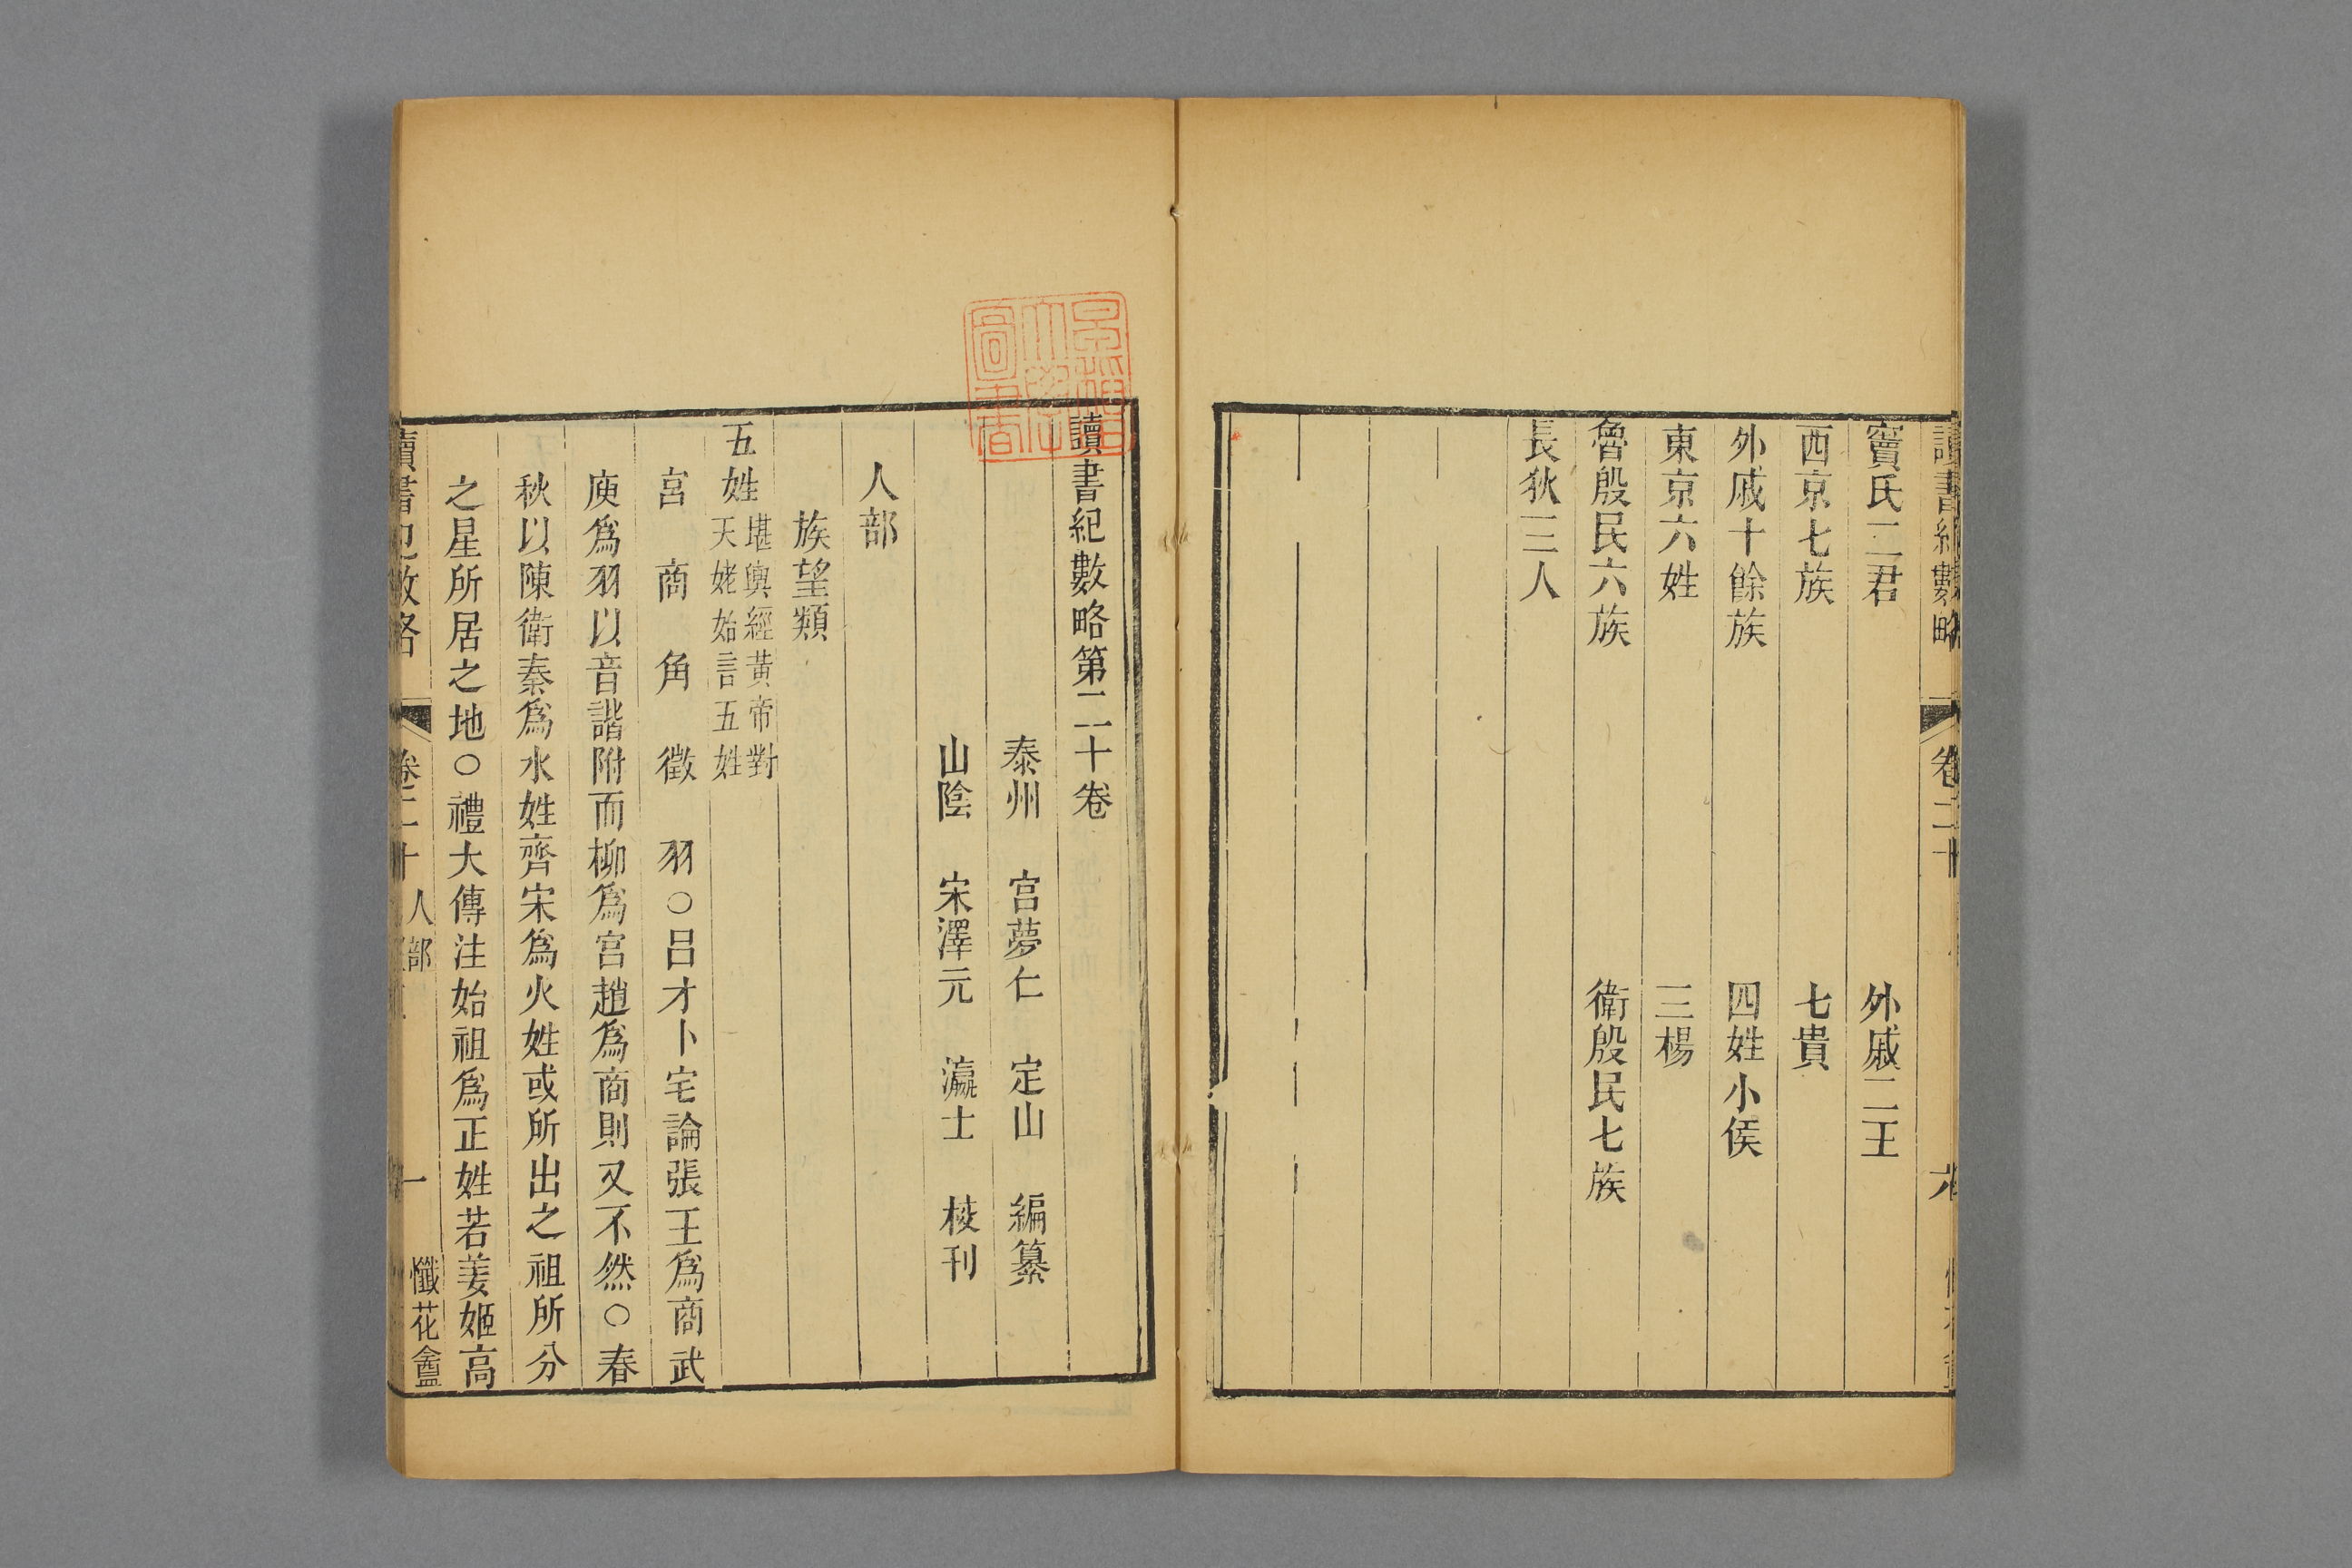 讀書紀數略
卷二十
六
竇氏二君　外戚二王
西京七族　七貴
外戚十餘族　四姓小侯
東京六姓　三楊
魯殷民六族　衛殷民七族
長狄三人
讀書紀數略第二十卷
泰州　宮夢仁　定山　編纂
山陰　宋澤元　瀛士　校刊
人部
族望類
五姓 堪輿經黃帝對
天姥始言五姓
宮　商　角　徵　羽○呂才卜宅論張王爲商武
庾爲羽以音諧附而柳爲宮趙爲商則又不然○春
秋以陳衛秦爲水姓齊宋爲火姓或所出之祖所分
之星所居之地○禮大傳注始祖爲正姓若姜姬高
讀書紀數略
卷二十
人部
一
懺花盦
景福大學圖書